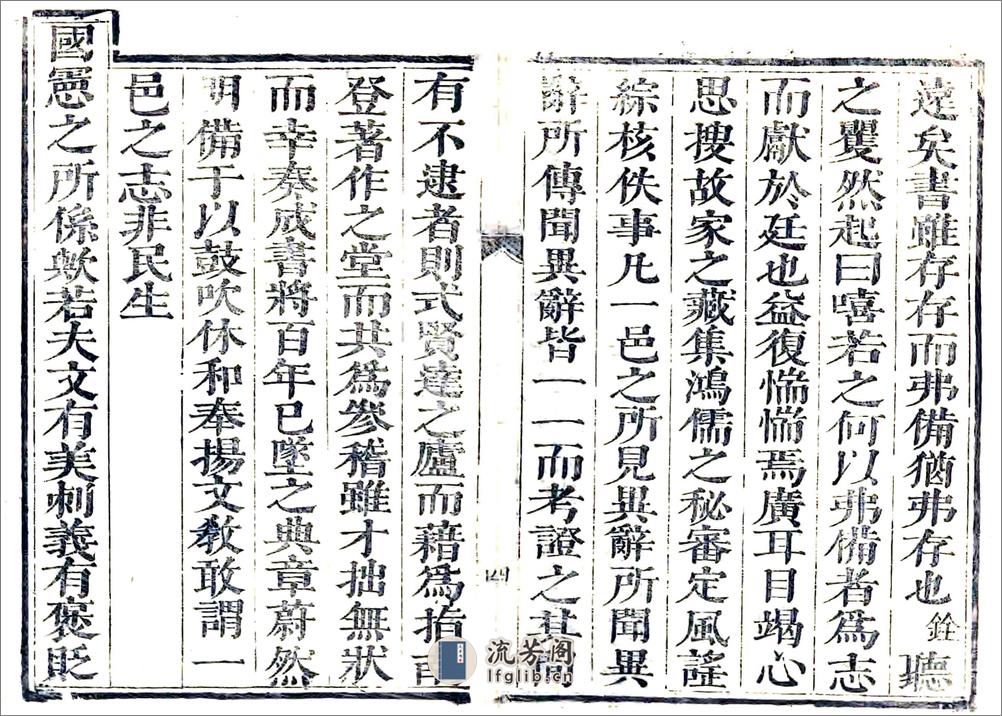 達矣書雖存存而弗備猶弗存也銓聽
之矍然起曰嘻若之何以弗備者爲志
而獻於廷也益復惴惴焉廣耳目竭心
思搜故家之藏集鴻儒之秘審定風謠
綜核佚事凡一邑之所見異辭所聞異
辭所傳聞異辭皆一一而考證之其尚
有不逮者則式賢達之廬而藉爲指南
登著作之堂而共爲參稽雖才拙無狀
而幸奏成書將百年已墜之典章蔚然
明備于以鼓吹休和奉揚文教敢謂一
邑之志非民生
國憲之所係歟若夫文有美刺義有褒貶
流芳阁
lfglib.cn